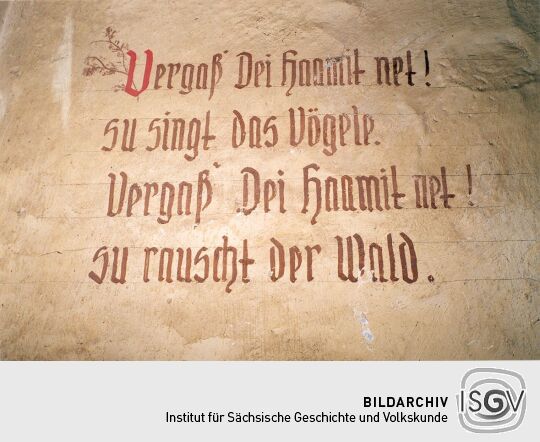 Vergaß Dei Haamit net!
su singt das Vögele.
Vergaß Dei Haamit net!
su rauscht der Wald.
BILDARCHIV
Institut für Sächsische Geschichte und Volkskunde
ISGV